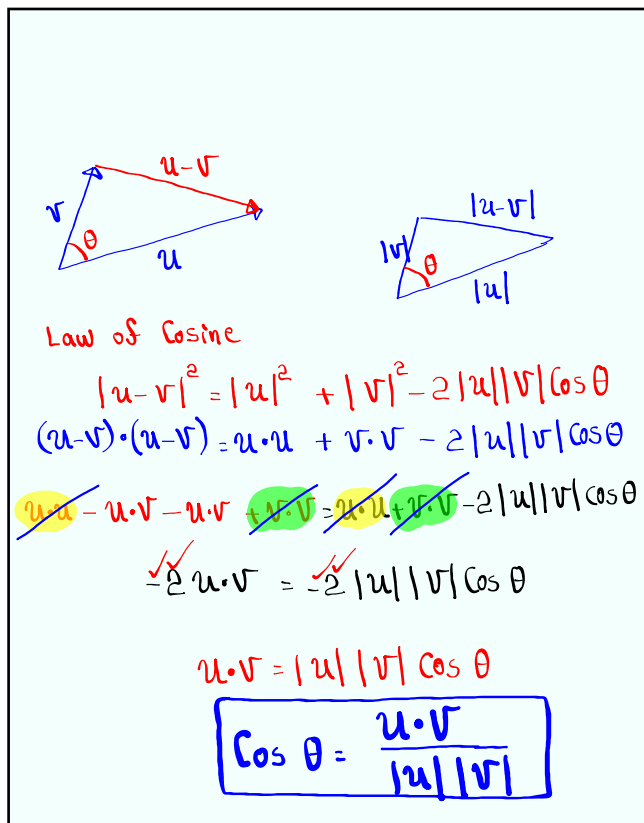 u-v
v
θ
u
|u-v|
|v|
θ
|u|
Law of Cosine
|u-v|² = |u|² + |v|² - 2|u||v| Cos θ
(u-v)·(u-v) = u·u + v·v - 2|u||v| cos θ
u·u - u·v - u·v + v·v = u·u + v·v - 2|u||v| cos θ
-2 u·v = -2 |u||v| Cos θ
u·v = |u||v| Cos θ
Cos θ = u·v / |u||v|